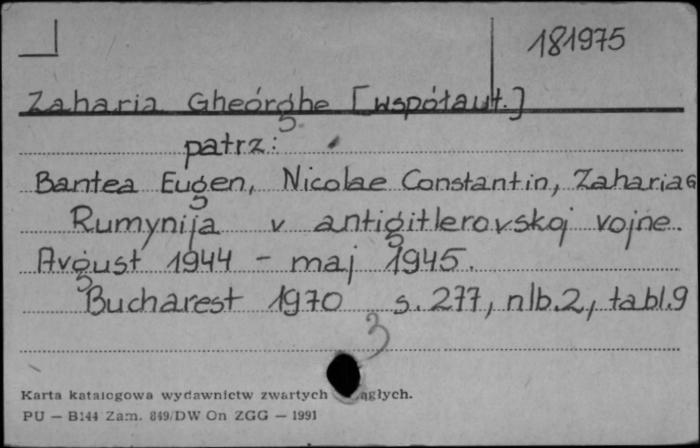 181975
Zaharia Gheorghe [współaut.]
patrz:
Bantea Eugen, Nicolae Constantin, Zaharia G
Rumynija v antigitlerovskoj vojne.
Avgust 1944 - maj 1945.
Bucharest 1970 s. 277, nlb. 2, tabl. 9
3
Karta katalogowa wydawnictw zwartych ągłych.
PU — B144 Zam. 849/DW On ZGG — 1991